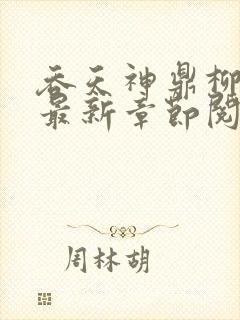 吞天神鼎柳
最新章节阅
周林胡